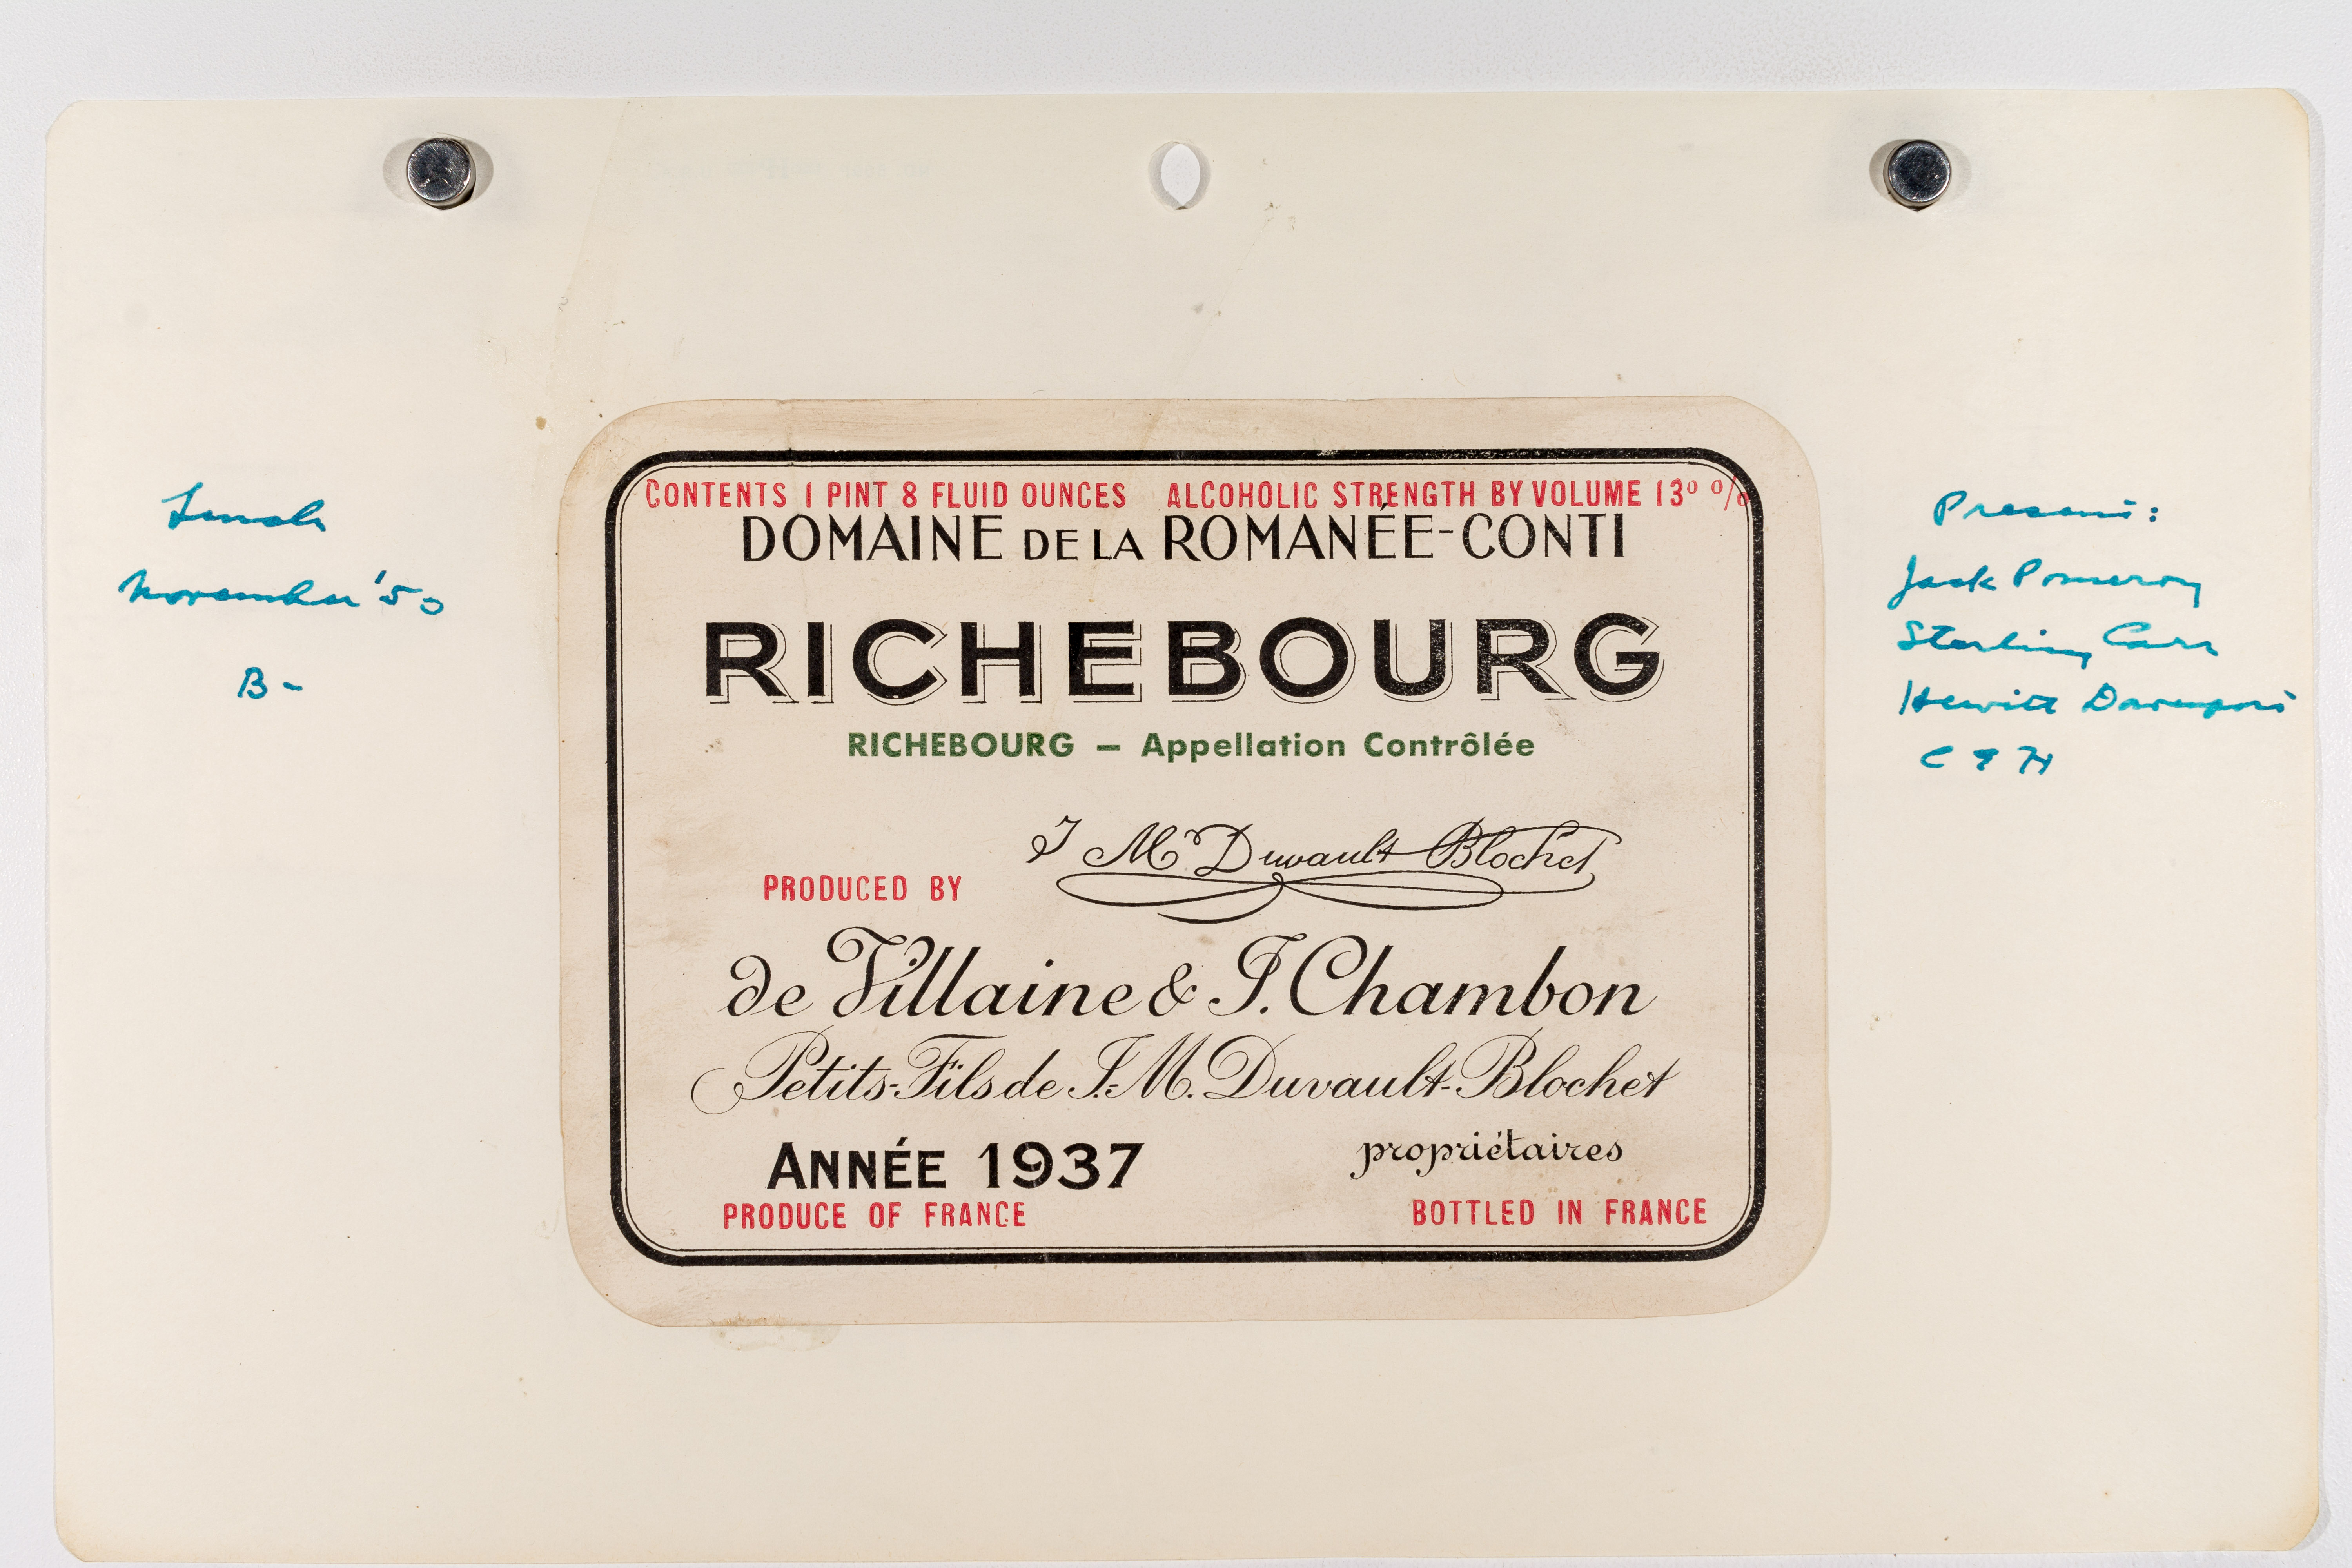 Lunch
November '50
B-
CONTENTS 1 PINT 8 FLUID OUNCES ALCOHOLIC STRENGTH BY VOLUME 13º %
DOMAINE DE LA ROMANÉE-CONTI
RICHEBOURG
RICHEBOURG — Appellation Contrôlée
J Mie Duvault Blochet
PRODUCED BY
de Villaine & J. Chambon
Petits-Fils de J.-M. Duvault-Blochet
ANNÉE 1937
propriétaires
PRODUCE OF FRANCE
BOTTLED IN FRANCE
Present:
Jack Pomeroy
Sterling Carr
Hewitt Davenport